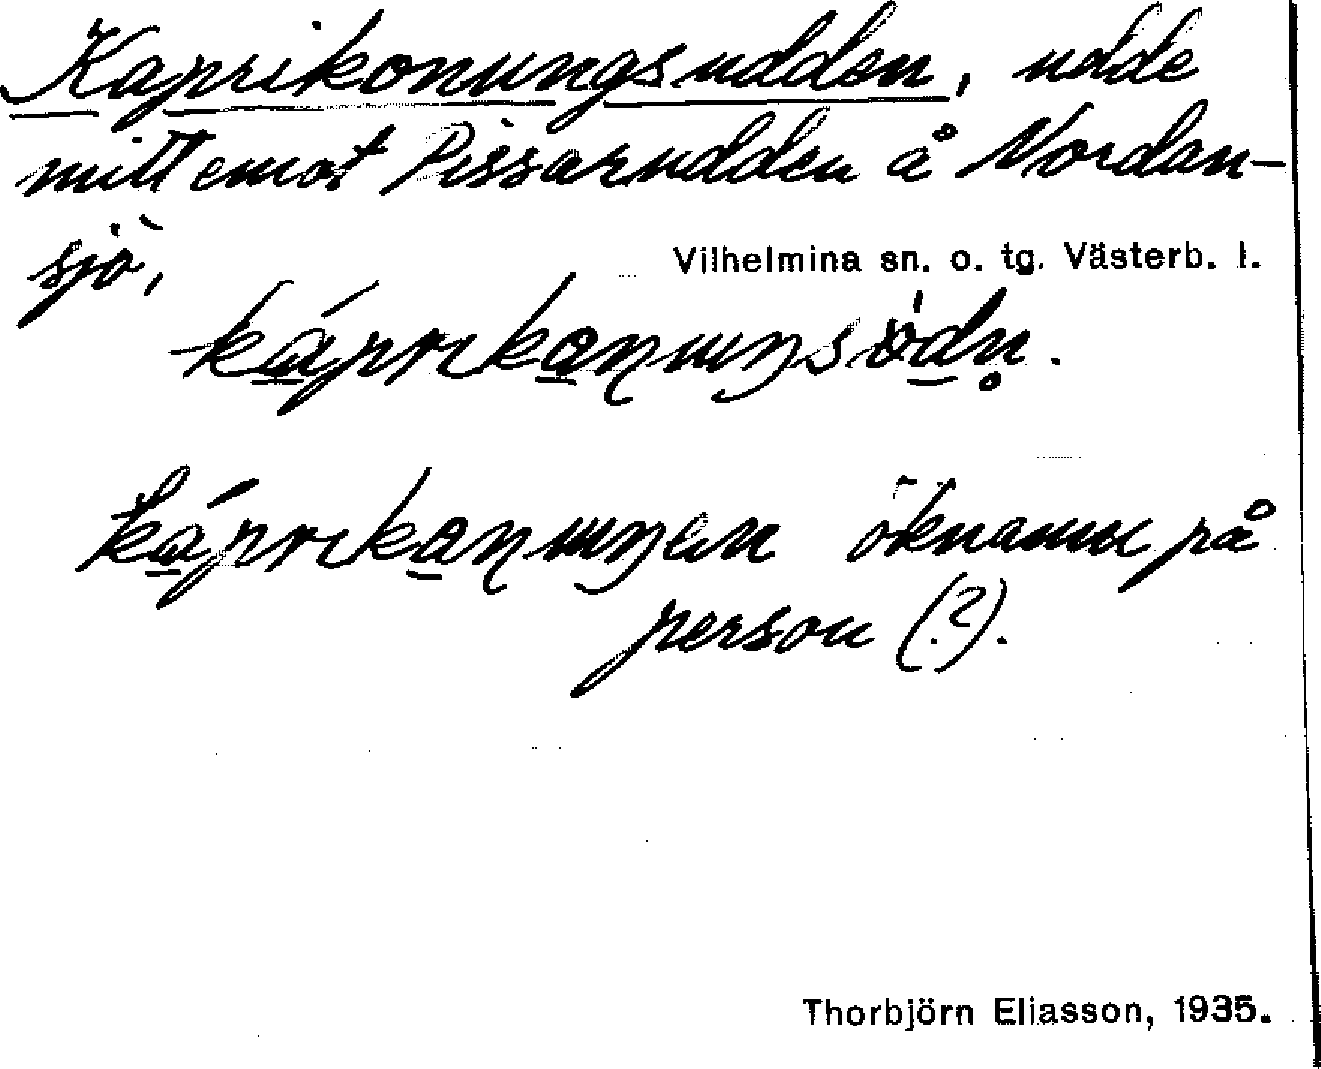 Kaprikonungsudden, udde
mitt emot Pissarudden å Nordan-
sjö,
Vilhelmina sn. o. tg. Västerb. l.
káprikonuŋsödn̥.
káprikonuŋen öknamn på
person (?).
Thorbjörn Eliasson, 1935.